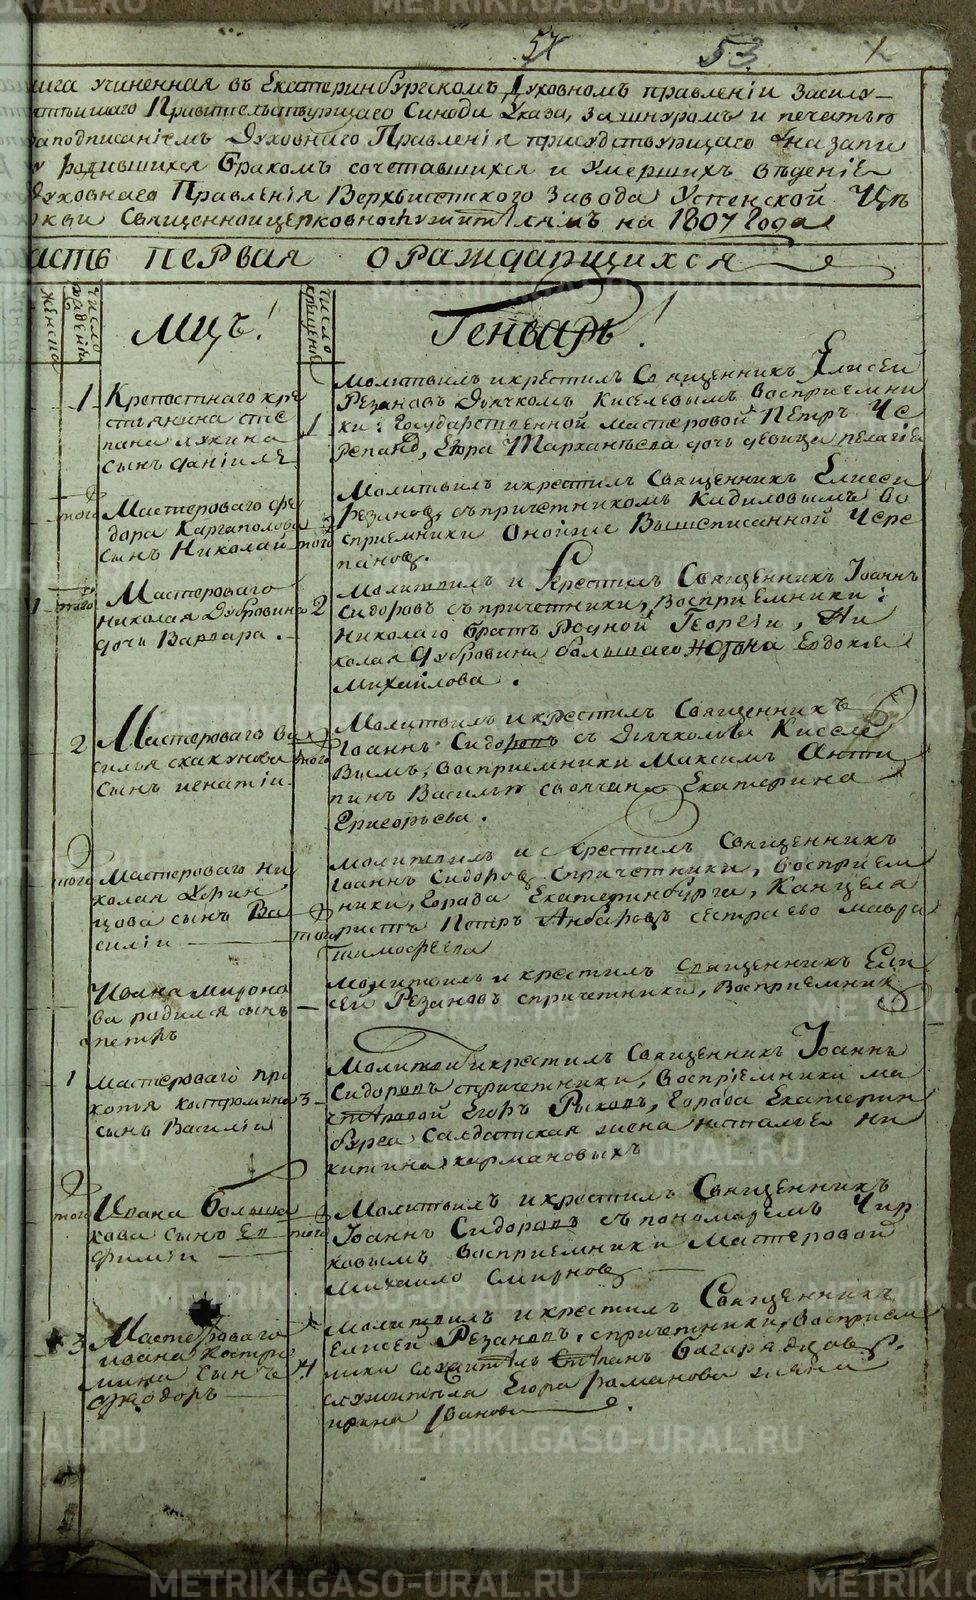 METRIKI.GASO-URAL.RU
57 53
учиненная въ Екатеринбургскомъ Духовномъ правленіи Засилу
Правительствующаго Синода Указа, зашнуромъ и печатью
заподписаніемъ Духовнаго Правленія присудствующаго на запи
родившихся бракомъ сочетавшихся и умершихъ въденіе
Духовнаго Правленія Верхъисетскаго Завода Успенской Цр
кви Священноицерковнослужителямъ на 1807 года
асть первая ораждающихся
женска
число рожденія
Мцъ!
число крещенія
Генварь!
1
Крепостнаго кре
стьянина сте
пана лукина
сынъ даніилъ
1
Молитвилъ икрестилъ Священникъ Елисей
Резановъ Дьячкомъ Киселевымъ восприемни
ки: Государственной мастеровой Петръ Че
репановъ, Егора дочь девица пелагея
того
Мастероваго фе
дора Каргаполова
сынъ Николай
того
Молитвилъ икрестилъ Священникъ Елисей
Резановъ съпричетникомъ Кадиловымъ во
сприемники Оногоже Вышеписанной Чере
пановъ.
1
того
Мастероваго
николая Дубровина
дочь Варвара.
2
Молитвилъ и крестилъ Священникъ Іоаннъ
Сидоровъ съпричетники, восприемники:
николаго братъ родной Георгіи, Ни
колая дубровина большаго жена Евдокея
михаилова.
2
Мастероваго Ва
силья скакунова
сынъ игнатіи
того
Молитвилъ икрестилъ Священникъ
Іоаннъ Сидоровъ съ Дьячкомъ Киселе
вымъ, восприемники Максимъ Анти
пинъ Василья Екатерина
Григорьева.
того
Мастероваго ни
колая
цова сынъ Ва
силіи
того
молитвилъ и крестилъ Священникъ
Іоаннъ Сидоровъ спричетники, восприем
ники, города Екатеринбурга, Канцеля
ристъ Петръ сестра ево мавра
тимофеева
Ивана мироно
ва родился сынъ
петръ
молитвилъ и крестилъ священникъ Ели
сей Резановъ спричетники, восприемник
1
мастероваго про
копья костромина
сынъ Василіи
3
Молитвилъ икрестилъ Священникъ Іоаннъ
Сидоровъ спричетники, восприемники ма
стеровой Егоръ Рыковъ, города Екатерин
бурга Салдатская жена наталья ни
китина кармановыхъ
того
Ивана больша
кова сынъ Ев
фиміи
того
Молитвилъ икрестилъ Священникъ
Іоаннъ Сидоровъ съ пономаремъ Чир
ковымъ восприемники Мастеровой
михаило Смирновъ
3
Мастероваго
ивана костро
мина сынъ
фёдоръ
4
молитвилъ икрестилъ Священникъ
Елисей Резановъ, спричетники, восприем
ники степанъ багарядцовъ,
служителя Егора Романова жена
ирина Иванова.